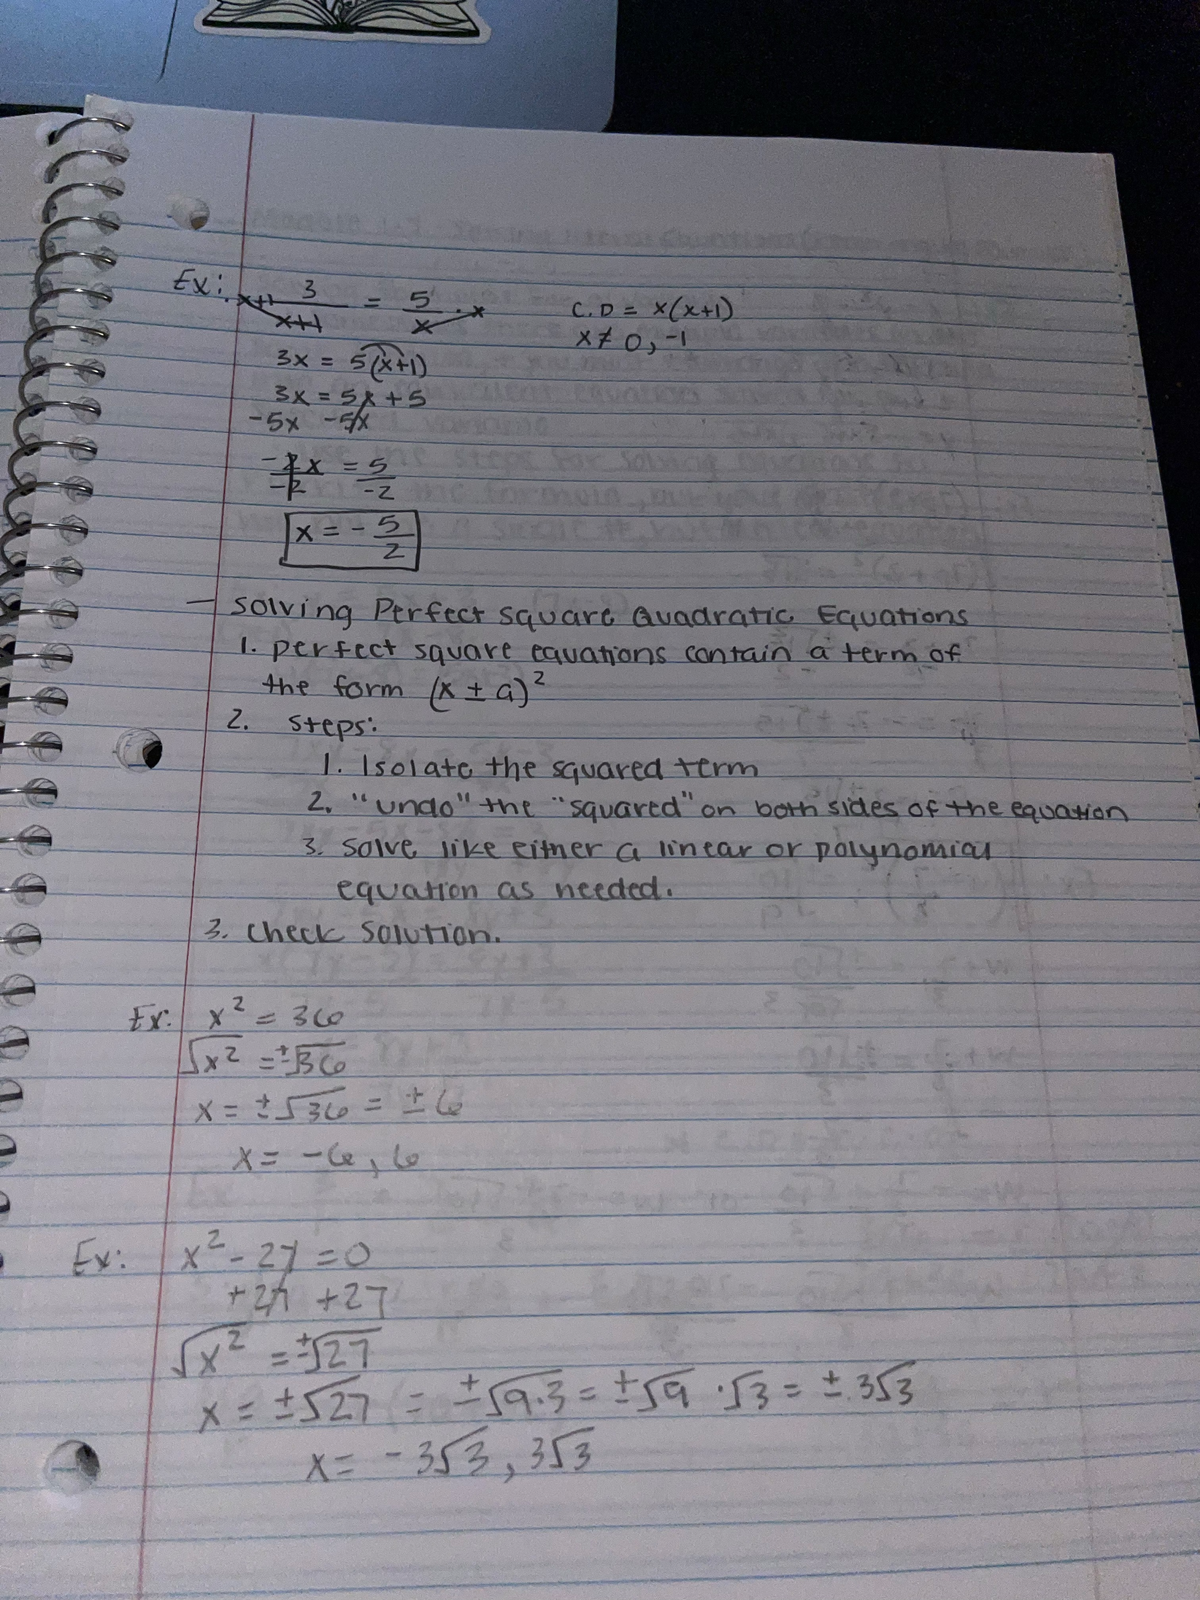 Ex: x+1 3/x+1 = 5/x · x C.D = x(x+1)
x ≠ 0, -1
3x = 5(x+1)
3x = 5x + 5
-5x -5x
-2x/-2 = 5/-2
x = - 5/2
- Solving Perfect Square Quadratic Equations
1. perfect square equations contain a term of
the form (x ± a)²
2. Steps:
1. Isolate the squared term
2. "undo" the "squared" on both sides of the equation
3. Solve like either a linear or polynomial
equation as needed.
3. Check Solution.
Ex: x² = 36
√x² = ±√36
x = ±√36 = ±6
x = -6, 6
Ex: x² - 27 = 0
+27 +27
√x² = ±√27
x = ±√27 = ±√9·3 = ±√9 · √3 = ± 3√3
x = -3√3, 3√3